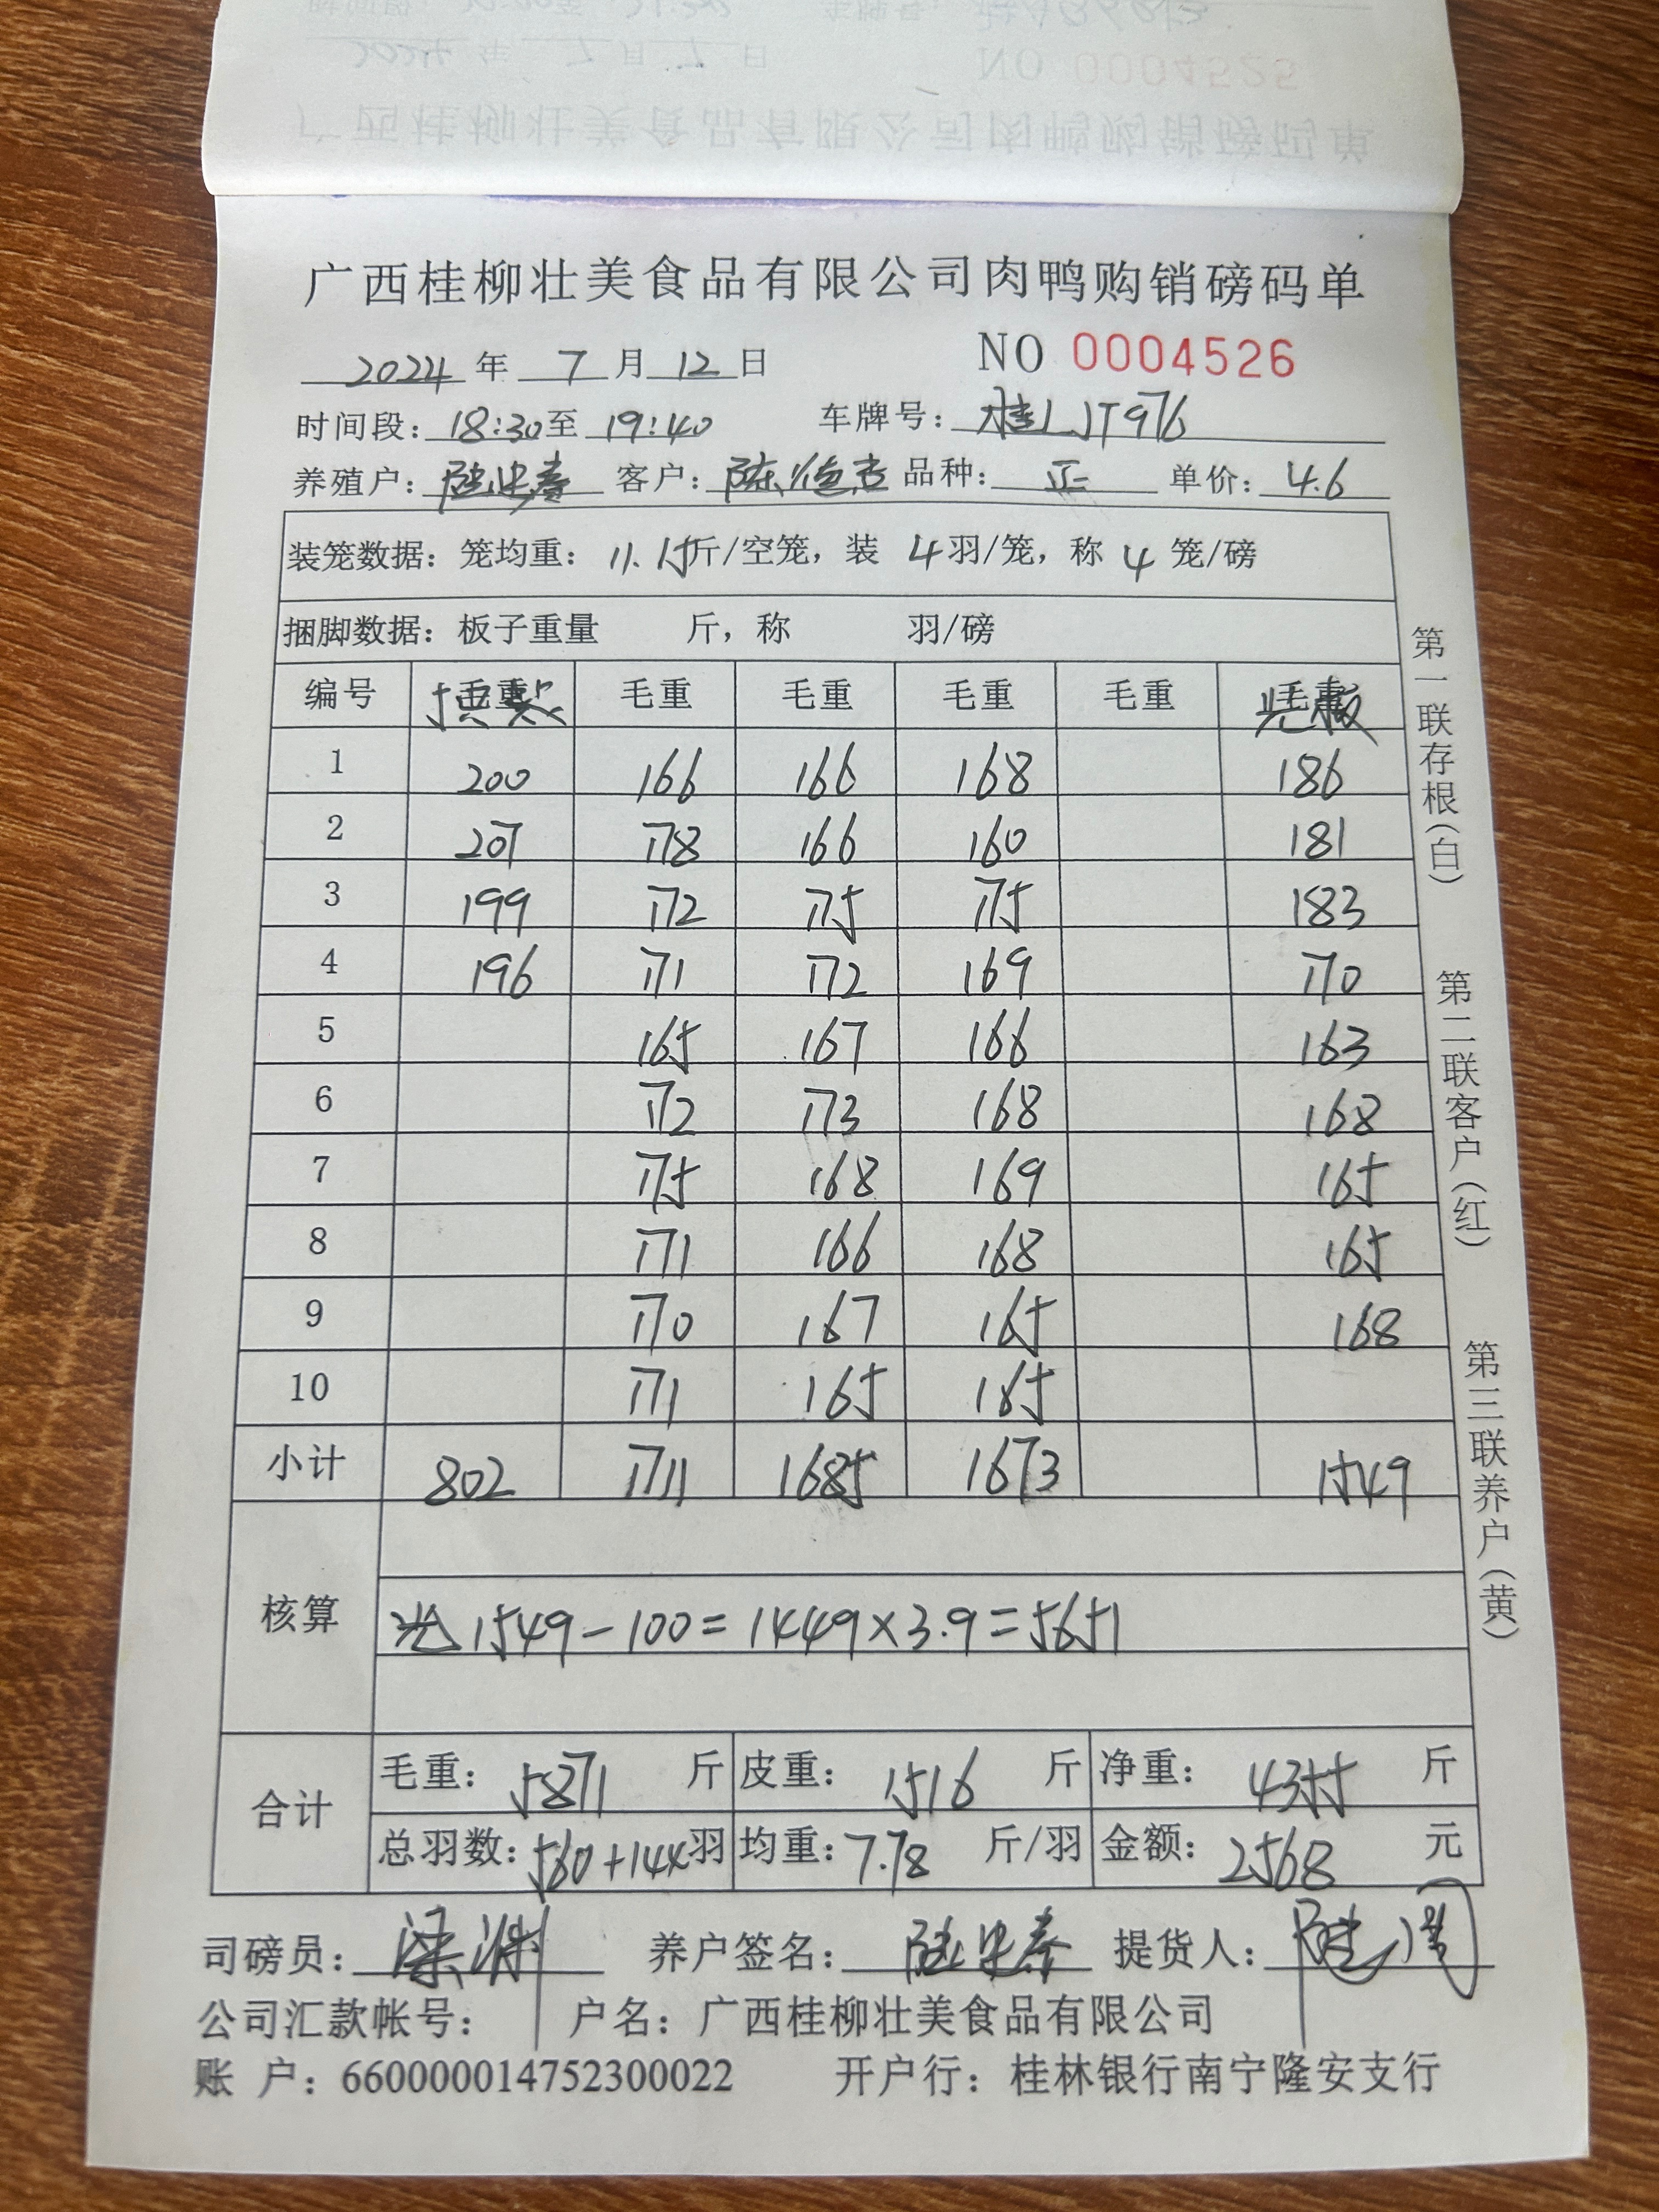 广西桂柳壮美食品有限公司肉鸭购销磅码单
2024 年 7 月 12 日 NO 0004526
时间段：18:30至 19:40 车牌号：桂LJT976
养殖户： 客户：陈德 品种：正 单价：4.6
装笼数据：笼均重：11.15斤/空笼，装 4羽/笼，称 4 笼/磅
捆脚数据：板子重量 斤，称 羽/磅
编号 毛重 毛重 毛重 毛重 毛重 毛重
1 200 166 166 168 186
2 207 178 166 160 181
3 199 172 175 175 183
4 196 171 172 169 170
5 165 167 166 163
6 172 173 168 168
7 175 168 169 165
8 171 166 168 165
9 170 167 165 168
10 171 165 165
小计 802 1711 1685 1673 1549
核算
光 1549-100=1449×3.9=5651
合计
毛重：5871 斤 皮重：1516 斤 净重：4355 斤
总羽数：560+144羽 均重：7.78 斤/羽 金额：25684 元
司磅员：梁 养户签名： 提货人：
公司汇款帐号： 户名：广西桂柳壮美食品有限公司
账 户：660000014752300022 开户行：桂林银行南宁隆安支行
第一联存根（白）
第二联客户（红）
第三联养户（黄）